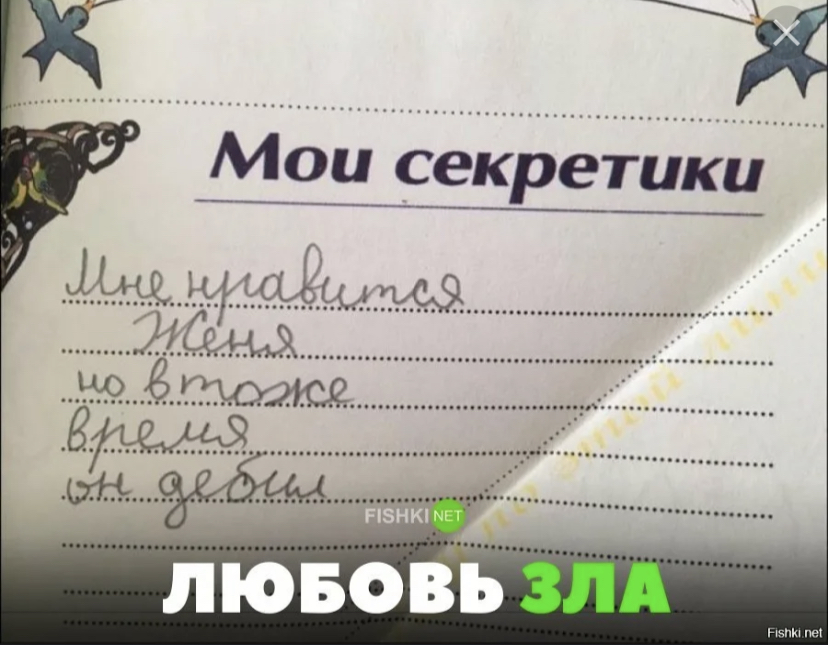 Мои секретики
Мне нравится
Женя
но в тоже
время
он дебил
по этой линии
FISHKI NET
ЛЮБОВЬ ЗЛА
Fishki.net